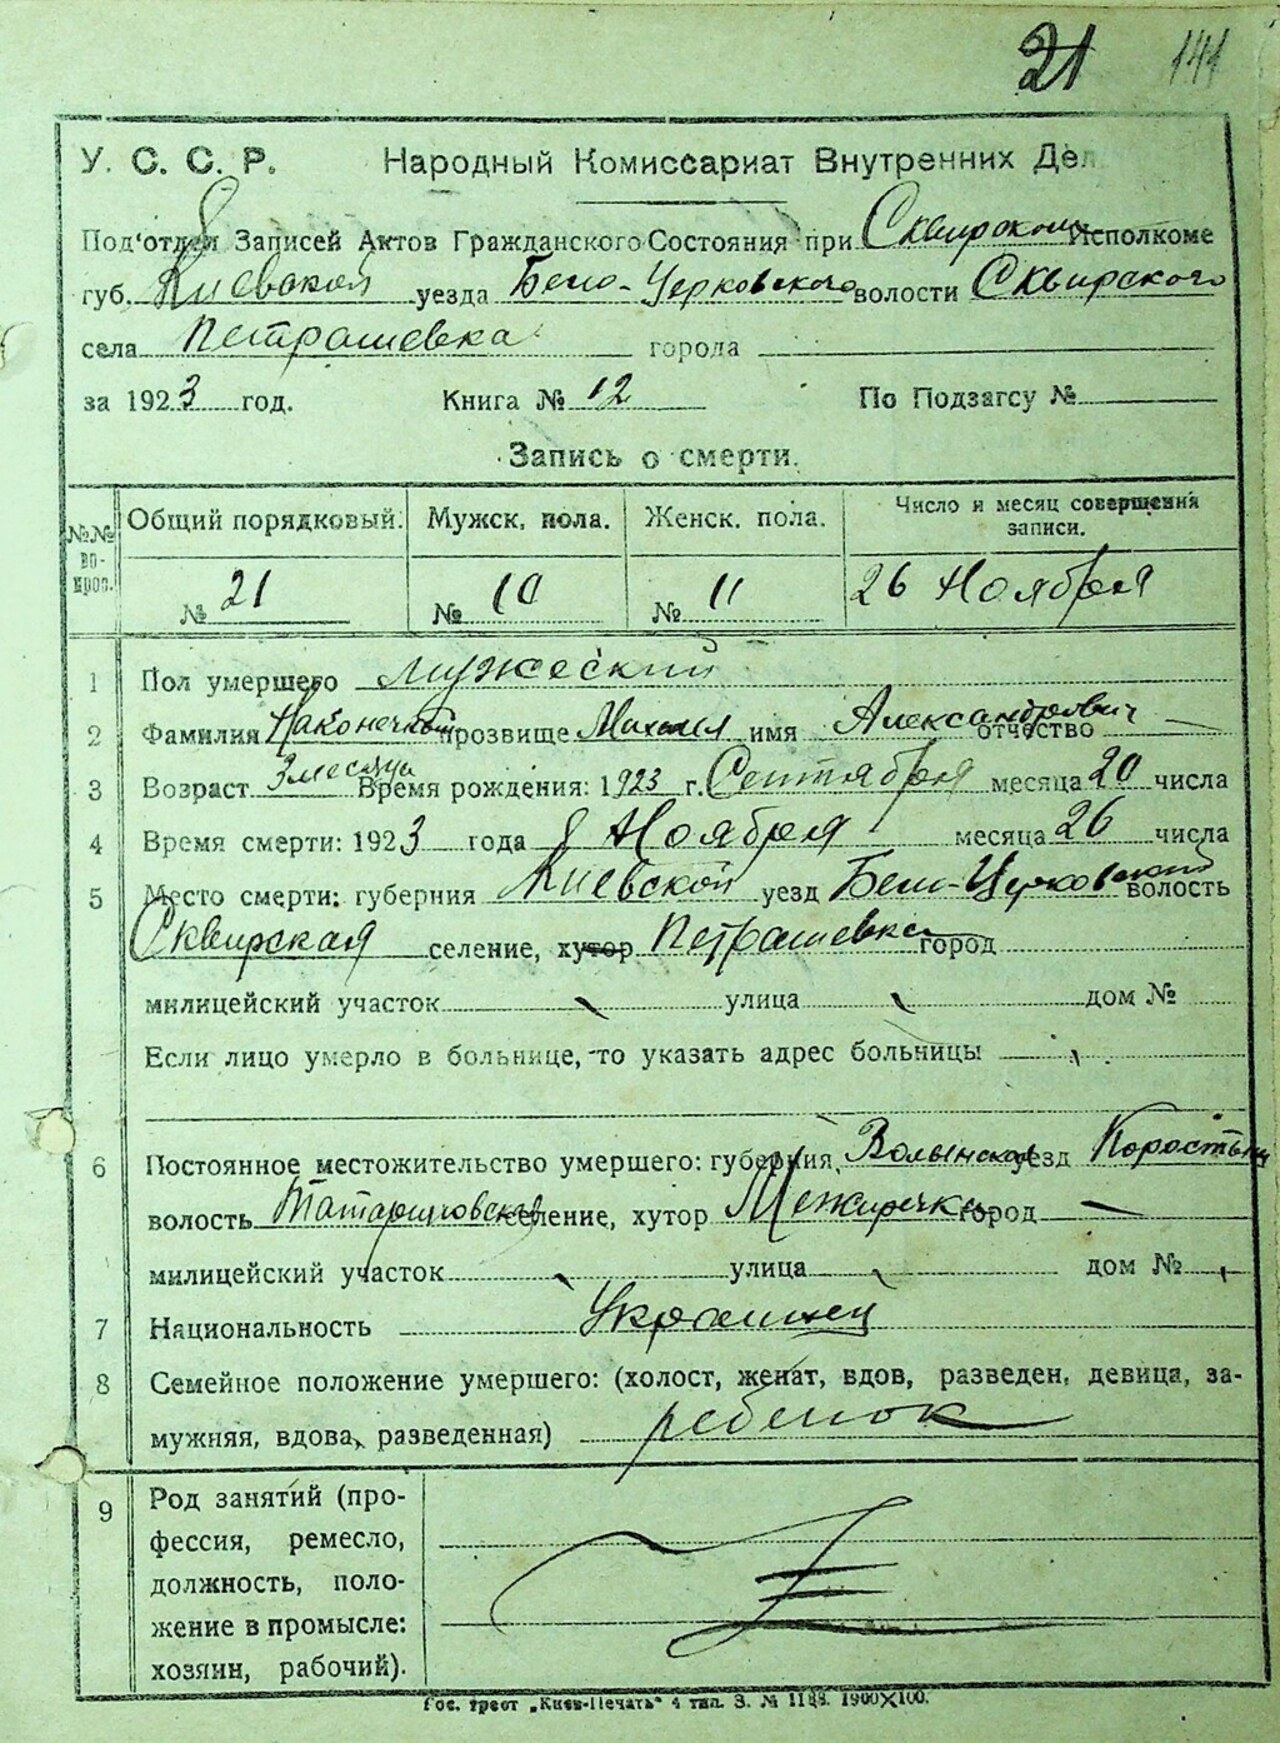 21 141
У. С. С. Р. Народный Комиссариат Внутренних Дел
Под'отдел Записей Актов Гражданского Состояния при Сквирском Исполкоме
губ. Киевской уезда Бело-Церковского волости Сквирского
села Петрашевка города
за 1923 год. Книга № 12 По Подзагсу №
Запись о смерти.
№№ во-прос. Общий порядковый. Мужск. пола. Женск. пола. Число и месяц совершения записи.
№ 21 № 10 № 11 26 Ноября
1 Пол умершего мужеский
2 Фамилия Наконечный прозвище Михаил имя Александрович отчество
3 Возраст 3 месяца Время рождения: 1923 г. Сентября месяца 20 числа
4 Время смерти: 1923 года Ноября месяца 26 числа
5 Место смерти: губерния Киевской уезд Бело-Церковский волость
Сквирская селение, хутор Петрашевка город
милицейский участок улица дом №
Если лицо умерло в больнице, то указать адрес больницы
6 Постоянное местожительство умершего: губерния, Волынская уезд Коростень
волость селение, хутор Межиречка город
милицейский участок улица дом №
7 Национальность Украинец
8 Семейное положение умершего: (холост, женат, вдов, разведен, девица, за-
мужняя, вдова, разведенная) ребенок
9 Род занятий (про-
фессия, ремесло,
должность, поло-
жение в промысле:
хозяин, рабочий).
Гос. трест „Киев-Печать" 4 тип. З. № 1188. 1900×100.